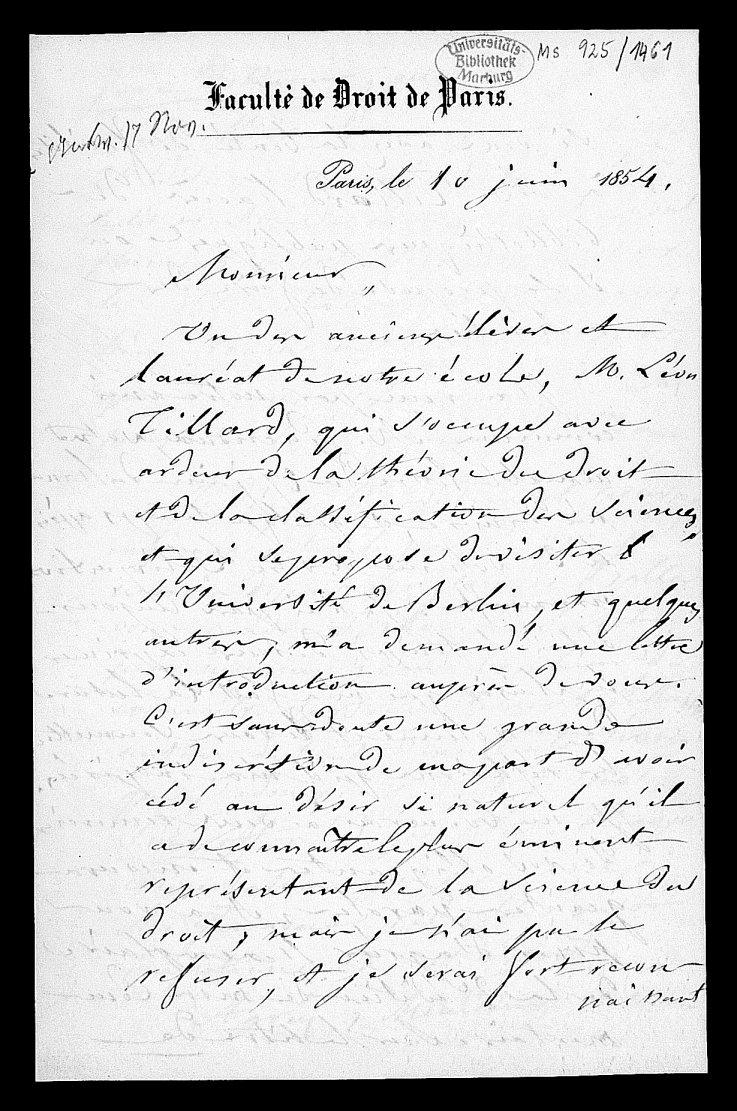 Universitäts-
Bibliothek
Marburg
Ms 925/1461
Faculté de Droit de Paris.
17 Nov.
Paris, le 10 juin 1854.
Monsieur,
Un des anciens élèves et
lauréat de notre école, M. Léon
Tillard, qui s'occupe avec
ardeur de la théorie du droit
et de la classification des sciences,
et qui se propose de visiter
l'Université de Berlin, et quelques
autres, m'a demandé une lettre
d'introduction auprès de vous.
C'est sans doute une grande
indiscrétion de ma part d'avoir
cédé au désir si naturel qu'il
a de connaître le plus éminent
représentant de la science du
droit; mais je n'ai pu le
refuser, et je serai fort recon-
naissant